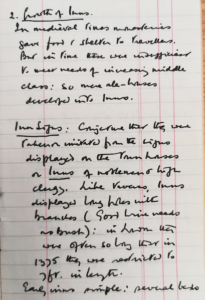 2. Growth of Inns.
In medieval times monasteries
gave food & shelter to travellers.
But in time these were insufficient
to meet needs of increasing middle
class: so more ale-houses
developed into Inns.
Inn Signs: Conjecture that they were
taken or imitated from the signs
displayed on the Town houses
or Inns of noblemen & high
clergy. Like Taverns, Inns
displayed long poles with
branches (Good wine needs
no bush): in London they
were often so long that in
1375 they were restricted to
7ft. in length.
Early inns simple: several beds